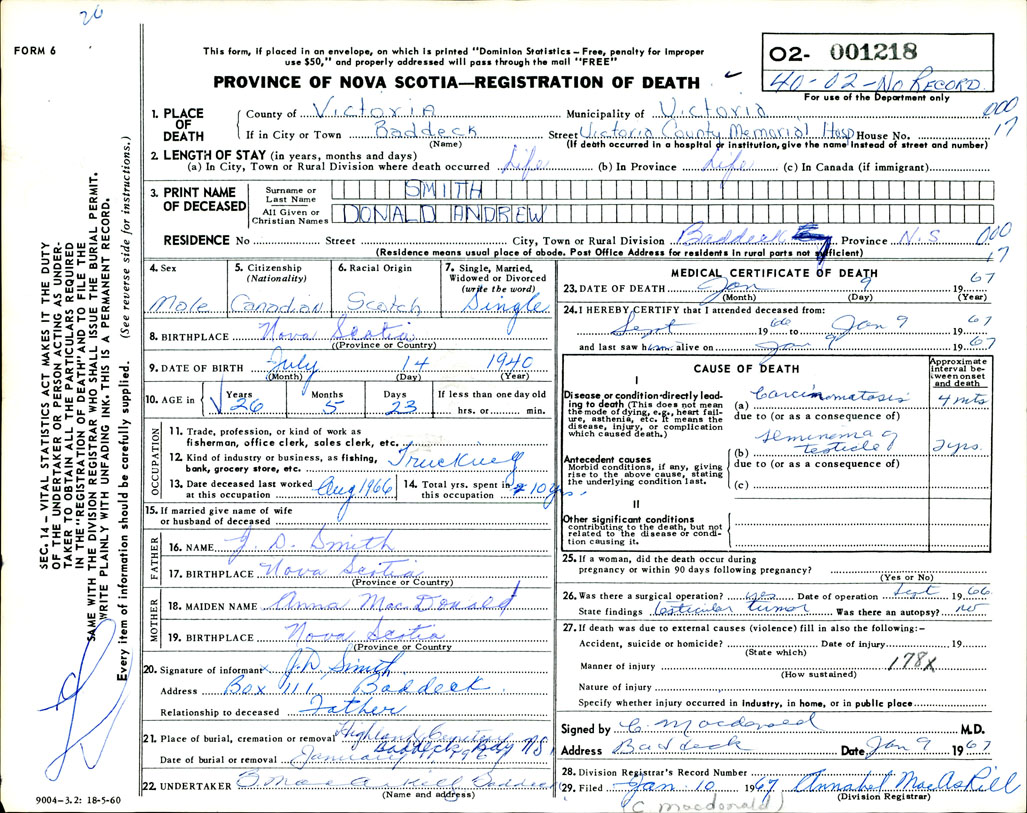 20
FORM 6
This form, if placed in an envelope, on which is printed "Dominion Statistics – Free, penalty for improper
use $50," and properly addressed will pass through the mail "FREE"
PROVINCE OF NOVA SCOTIA—REGISTRATION OF DEATH
O2- 001218
40-02-No Record
For use of the Department only
000
17
1. PLACE OF DEATH
County of Victoria Municipality of Victoria
If in City or Town Baddeck Street Victoria County Memorial Hosp House No.
(Name) (If death occurred in a hospital or institution, give the name instead of street and number)
2. LENGTH OF STAY (in years, months and days)
(a) In City, Town or Rural Division where death occurred Life (b) In Province Life (c) In Canada (if immigrant)
3. PRINT NAME OF DECEASED
Surname or Last Name SMITH
All Given or Christian Names DONALD ANDREW
RESIDENCE No Street City, Town or Rural Division Baddeck Province N.S
000
17
(Residence means usual place of abode. Post Office Address for residents in rural parts not sufficient)
4. Sex Male
5. Citizenship (Nationality) Canadian
6. Racial Origin Scotch
7. Single, Married, Widowed or Divorced (write the word) Single
8. BIRTHPLACE Nova Scotia
(Province or Country)
9. DATE OF BIRTH July 14 1940
(Month) (Day) (Year)
10. AGE in Years 26 Months 5 Days 23 If less than one day old hrs. or min.
OCCUPATION
11. Trade, profession, or kind of work as
fisherman, office clerk, sales clerk, etc.
12. Kind of industry or business, as fishing,
bank, grocery store, etc. Trucking
13. Date deceased last worked at this occupation Aug 1966
14. Total yrs. spent in this occupation 10 yrs.
15. If married give name of wife
or husband of deceased
FATHER
16. NAME J. D. Smith
17. BIRTHPLACE Nova Scotia
(Province or Country)
MOTHER
18. MAIDEN NAME Anna MacDonald
19. BIRTHPLACE Nova Scotia
(Province or Country)
20. Signature of informant x J.D. Smith
Address Box 111 Baddeck
Relationship to deceased Father
21. Place of burial, cremation or removal Highland Cemetery
Baddeck Bay NS
Date of burial or removal January 11 1967
22. UNDERTAKER Baddeck
(Name and address)
MEDICAL CERTIFICATE OF DEATH
23. DATE OF DEATH Jan 9 67
(Month) (Day) (Year)
24. I HEREBY CERTIFY that I attended deceased from:
Sept 1966 to Jan 9 1967
and last saw him alive on Jan 9 1967
CAUSE OF DEATH
Approximate interval between onset and death
I
Disease or condition directly leading to death (This does not mean
the mode of dying, e.g., heart failure, asthenia, etc. It means the
disease, injury, or complication
which caused death.)
(a) Carcinomatosis 4 mts
due to (or as a consequence of)
Antecedent causes
Morbid conditions, if any, giving
rise to the above cause, stating
the underlying condition last.
(b) seminoma of testicle 2 yrs.
due to (or as a consequence of)
(c)
II
Other significant conditions
contributing to the death, but not
related to the disease or condition causing it.
25. If a woman, did the death occur during
pregnancy or within 90 days following pregnancy?
(Yes or No)
26. Was there a surgical operation? yes Date of operation Sept 1966
State findings testicular tumor Was there an autopsy? no
27. If death was due to external causes (violence) fill in also the following:–
Accident, suicide or homicide? Date of injury 19
(State which)
Manner of injury 178X
(How sustained)
Nature of injury
Specify whether injury occurred in industry, in home, or in public place
Signed by C. Macdonald M.D.
Address Baddeck Date Jan 9 1967
28. Division Registrar's Record Number
29. Filed Jan. 10 1967 Annabel MacAskill
(Division Registrar)
(C. Macdonald)
SEC. 14 – VITAL STATISTICS ACT MAKES IT THE DUTY
OF THE UNDERTAKER OR PERSON ACTING AS UNDER-
TAKER TO OBTAIN ALL THE PARTICULARS REQUIRED
IN THE "REGISTRATION OF DEATH" AND TO FILE THE
SAME WITH THE DIVISION REGISTRAR WHO SHALL ISSUE THE BURIAL PERMIT.
WRITE PLAINLY WITH UNFADING INK. THIS IS A PERMANENT RECORD.
Every item of information should be carefully supplied. (See reverse side for instructions.)
9004–3.2: 18-5-60